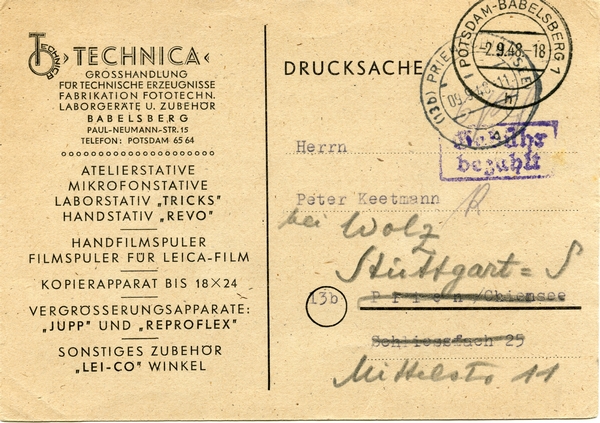 TECHNICA
›TECHNICA‹
GROSSHANDLUNG
FÜR TECHNISCHE ERZEUGNISSE
FABRIKATION FOTOTECHN.
LABORGERÄTE U. ZUBEHÖR
BABELSBERG
PAUL-NEUMANN-STR. 15
TELEFON: POTSDAM 65 64
ATELIERSTATIVE
MIKROFONSTATIVE
LABORSTATIV „TRICKS"
HANDSTATIV „REVO"
HANDFILMSPULER
FILMSPULER FÜR LEICA-FILM
KOPIERAPPARAT BIS 18×24
VERGRÖSSERUNGSAPPARATE:
„JUPP" UND „REPROFLEX"
SONSTIGES ZUBEHÖR
„LEI-CO" WINKEL
DRUCKSACHE
POTSDAM-BABELSBERG 1
-2.9.48-18
(13b) PRIEN
09.9.48.-11
Gebühr
bezahlt
Herrn
Peter Keetmann
bei Wolz
Stuttgart=S
13b
Prien/Chiemsee
Schliessfach 25
Mittelstr 11